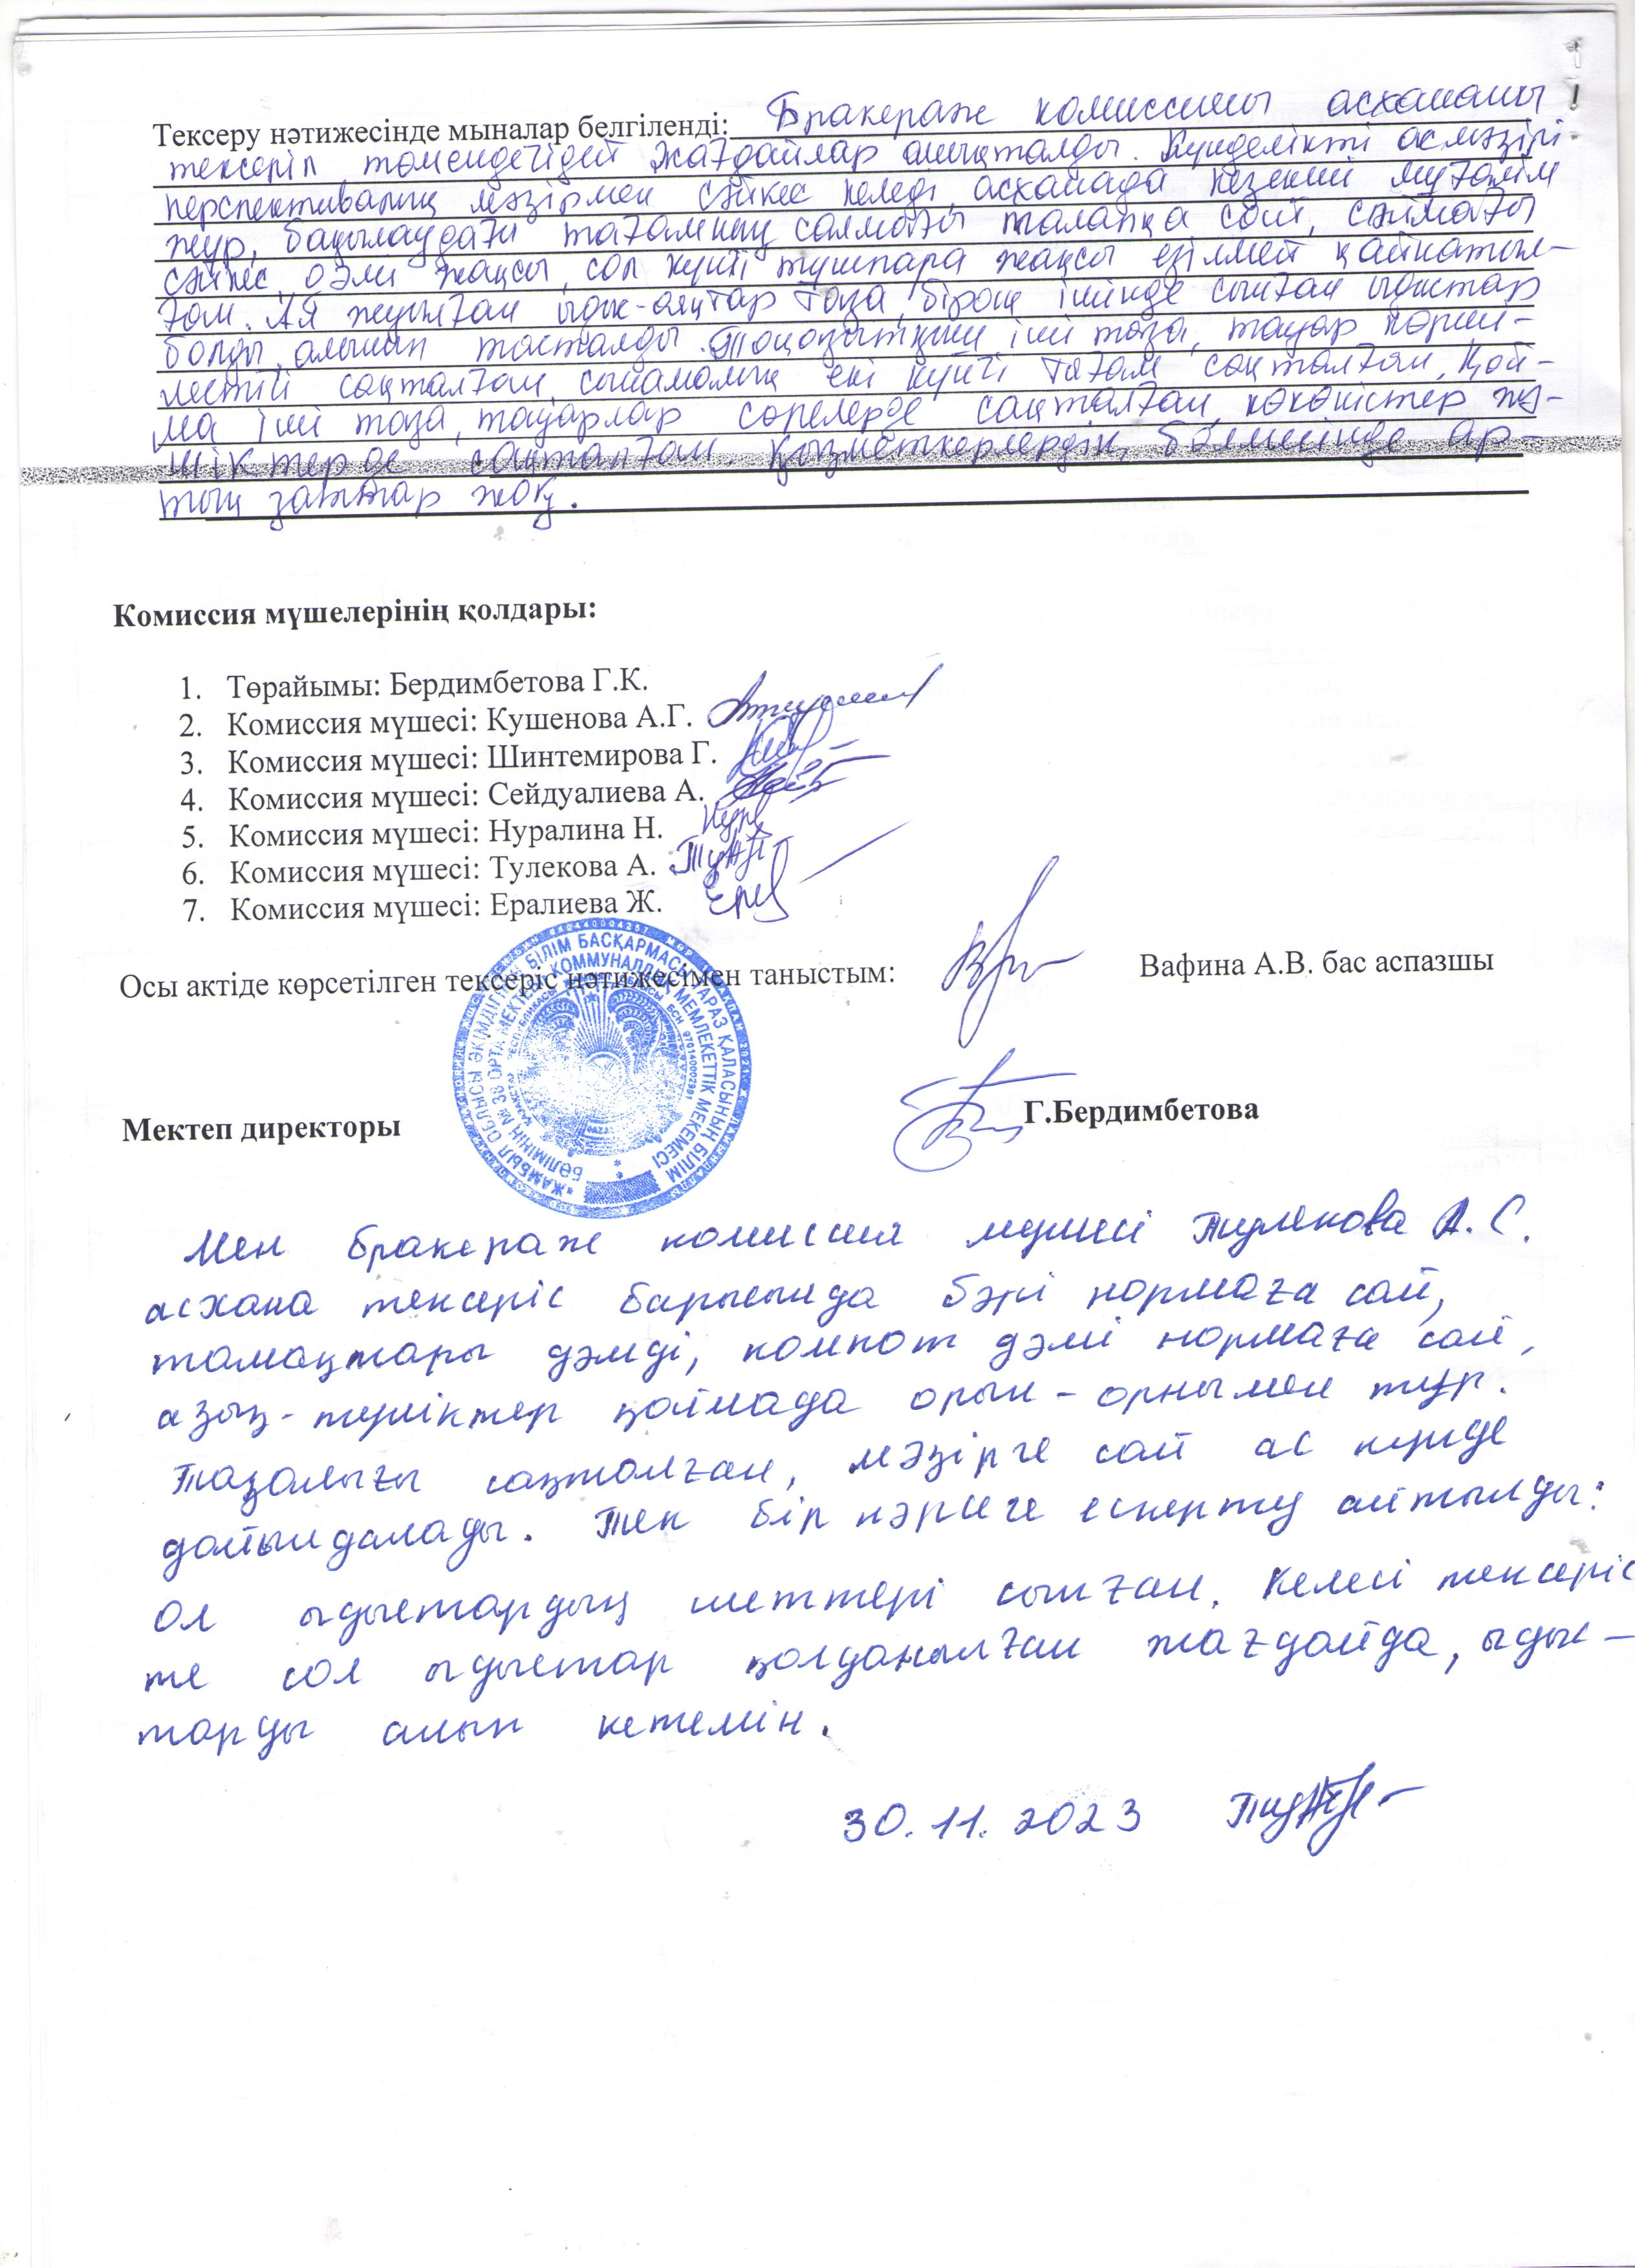 Тексеру нәтижесінде мыналар белгіленді: Бракераж комиссиясы асхананы
тексеріп төмендегідей жағдайлар анықталды. Күнделікті ас мәзірі
перспективалық мәзірмен сәйкес келеді, асханада кезекші мұғалім
жүр, бақылаудағы тағамның салмағы талапқа сай, салмағы
сәйкес, дәмі жақсы, сол күнгі тушпара жақсы езілмей қайнатыл-
ған. Ая жуылған ыдыс-аяқтар таза, бірақ ішінде сынған ыдыстар
болды, алынып тасталды. Тоңазытқыш іші таза, тауар көрші-
лестігі сақталған, сынамалық екі күнгі тағам сақталған, Қой-
ма іші таза, тауарлар сөрелерде сақталған, көкөністер жә-
шіктерде сақталған. Қызметкерлердің бөлмесінде ар-
тық заттар жоқ.
Комиссия мүшелерінің қолдары:
1. Төрайымы: Бердимбетова Г.К.
2. Комиссия мүшесі: Кушенова А.Г.
3. Комиссия мүшесі: Шинтемирова Г.
4. Комиссия мүшесі: Сейдуалиева А.
5. Комиссия мүшесі: Нуралина Н.
6. Комиссия мүшесі: Тулекова А.
7. Комиссия мүшесі: Ералиева Ж.
Осы актіде көрсетілген тексеріс нәтижесімен таныстым: Вафина А.В. бас аспазшы
Мектеп директоры Г.Бердимбетова
Мен бракераж комиссия мүшесі Тулекова А.С.
асхана тексеріс барысында бәрі нормаға сай,
тамақтары дәмді, компот дәмі нормаға сай,
азық-түліктер қоймада орын-орнымен тұр.
Тазалығы сақталған, мәзірге сай ас күнде
дайындалады. Тек бір нәрсеге ескерту айтылды:
ол ыдыстардың шеттері сынған. Келесі тексеріс
те сол ыдыстар қолданылған жағдайда, ыдыс-
тарды алып кетемін.
30.11.2023